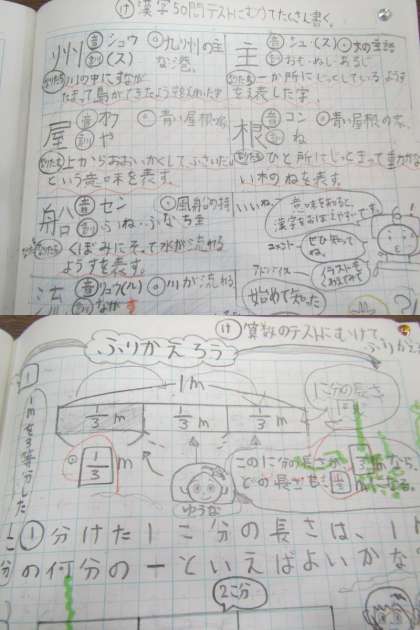 け 漢字50問テストにむけてたくさん書く。
州 音 シュウ
訓 (ス)
九州の主な港。
なりたち 川の中にすながたまって島ができたようすをえがいた字
主 音 シュ・(ス)
訓 おも・ぬし・あるじ
なりたち 一か所にじっとしているようすを表した字。
屋 音 オク
訓 や
青い屋根の家。
なりたち 上からおおいかくしてふさいだという意味を表す。
根 音 コン
訓 ね
青い屋根の家。
なりたち ひと所にじっと止まって動かない木のねを表す。
船 音 セン
訓 ふね・ふな
風船の持ち主
なりたち くぼみにそって水が流れるようすを表す。
流 音 リュウ(ル)
訓 ながす
川が流れる
いいね。
意味をあると、漢字をおぼえやすいです。
コメント
ぜひ知ってね。
アドバイス
イラストをかえてみて
始めて知った
け 算数のテストにむけて、ふりかえる
ふりかえろう
1
1mを3等分した
1m
1/3 m
1/3 m
1/3 m
1/3 m
ゆうな
1こ分の長さ
このに分の長さが 1/3 mなら
どの長さも 1/3 mになる。
① 分けた1こ分の長さは、1
分の何分の一といえばよいかな
2こ分